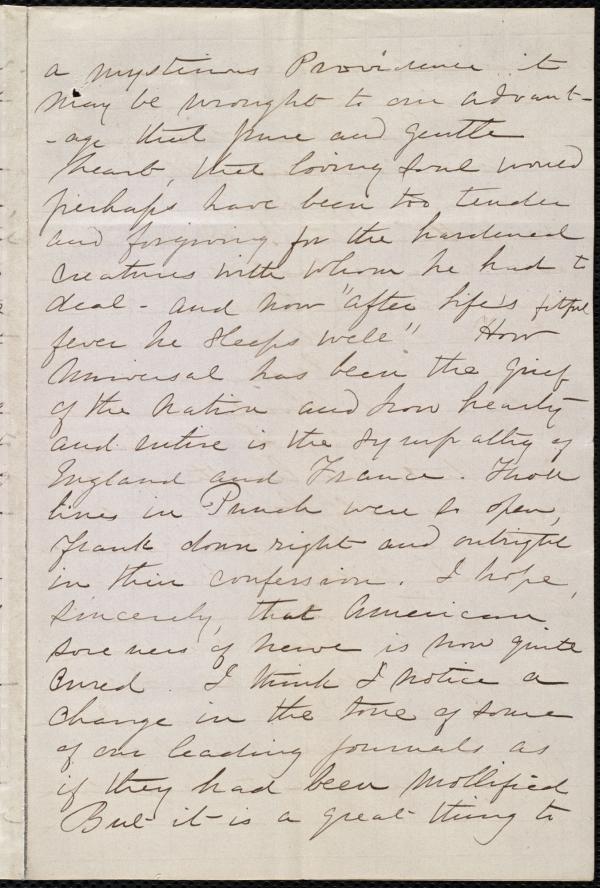 a mysterious Providence it
may be wrought to our advant-
-age that pure and gentle
heart, that loving soul would
perhaps have been too tender
and forgiving for the hardened
creatures with whom he had to
deal - and now "after life's fitful
fever he sleeps well" How
Universal has been the grief
of the nation and how hearty
and entire is the sympathy of
England and France. Those
lines in Punch were so open,
frank downright and outright
in their confession. I hope,
sincerely, that American
soreness of nerve is now quite
cured. I think I notice a
change in the tone of some
of our leading journals as
if they had been mollified
But it is a great thing to